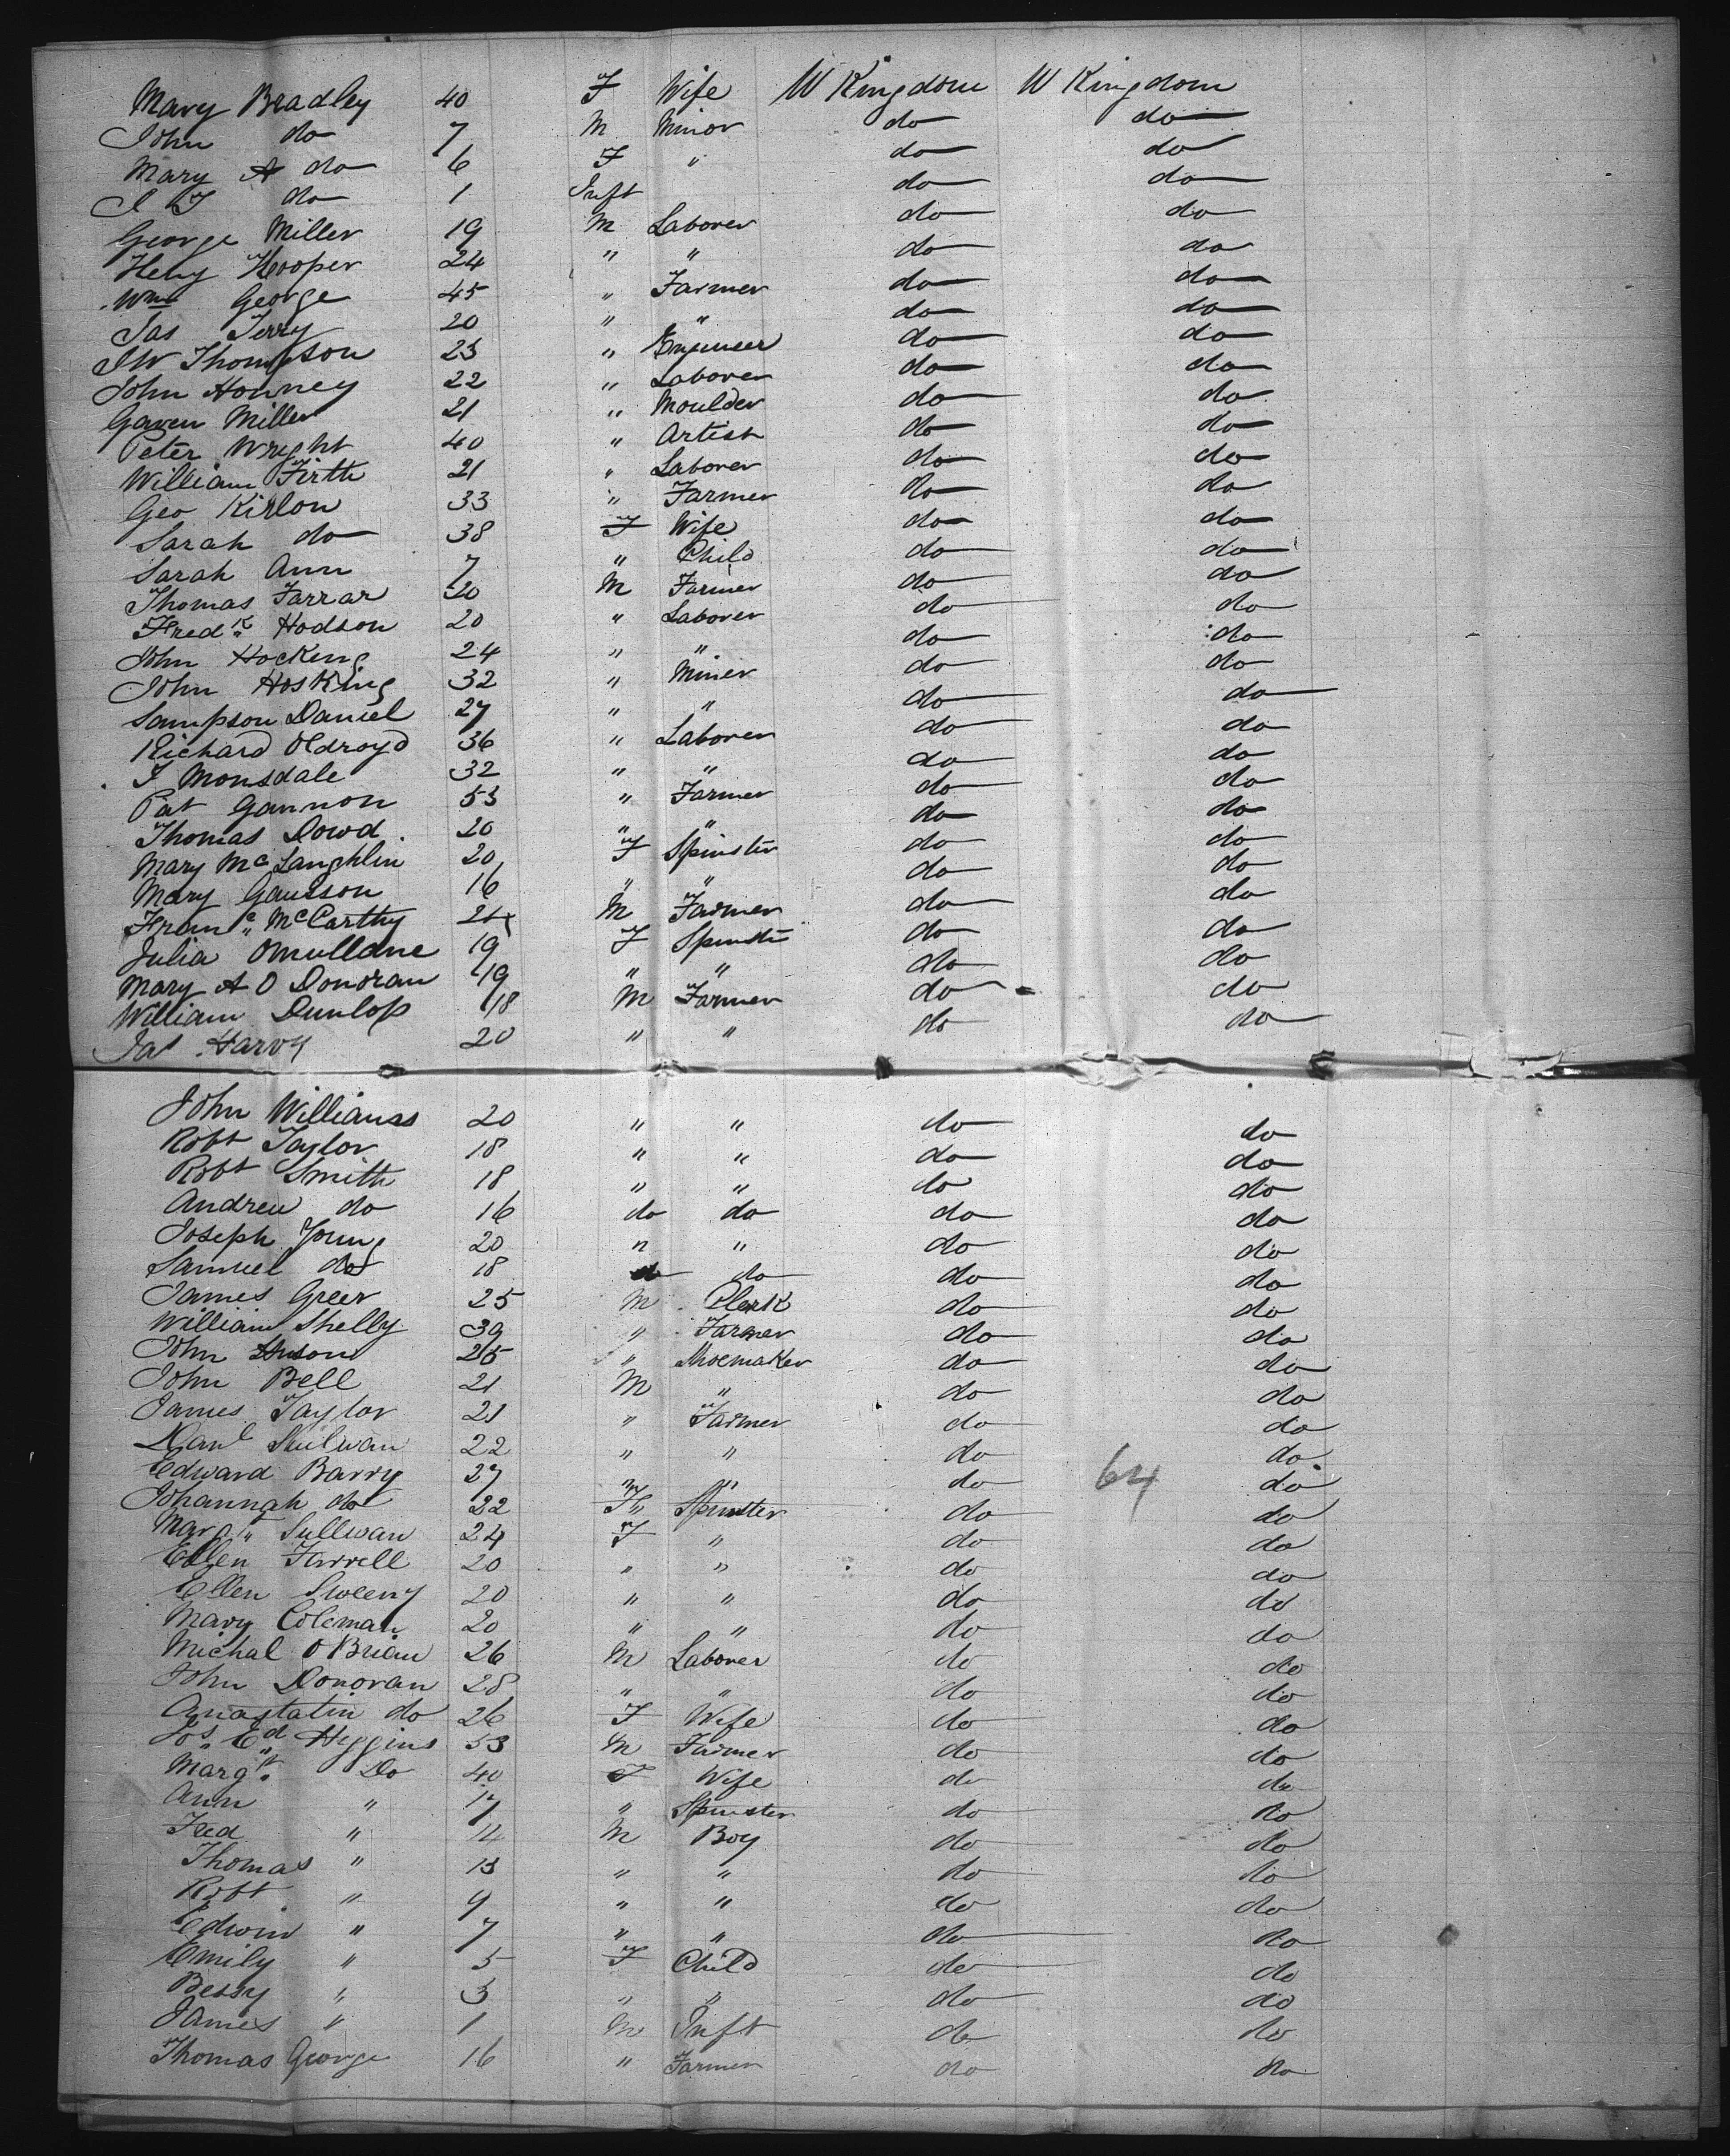 Mary Bradley 40 F Wife U Kingdom U Kingdom
John do 7 M Minor do do
Mary A do 6 F " do do
J F do 1 Inft do do
George Miller 19 M Laborer do do
Heny Hooper 24 " " do do
Wm George 45 " Farmer do do
Jas Terry 20 " " do do
J W Thompson 23 " Engineer do do
John Honney 22 " Laborer do do
Gaven Miller 21 " Moulder do do
Peter Wright 40 " Artist do do
William Firth 21 " Laborer do do
Geo Kirlon 33 " Farmer do do
Sarah do 38 F Wife do do
Sarah Ann 7 " Child do do
Thomas Farrar 20 M Farmer do do
Fredk Hodson 20 " Laborer do do
John Hocking 24 " " do do
John Hosking 32 " Miner do do
Sampson Daniel 27 " " do do
Richard Oldroyd 36 " Laborer do do
J Monsdale 32 " " do do
Pat Gannon 53 " Farmer do do
Thomas Dowd 20 " " do do
Mary McLaughlin 20 F Spinster do do
Mary Gausson 16 " " do do
McCarthy M Farmer do do
Julia Omullane 19 F Spinstr do do
Mary A O Donovan 19 " " do do
William Dunlop 18 M Farmer do do
Jas Harvy 20 " " do do
John Williams 20 " " do do
Robt Taylor 18 " " do do
Robt Smith 18 " " do do
Andrew do 16 do do do do
Joseph Young 20 " " do do
Samuel do 18 do do do do
James Greer 25 M Clerk do do
William Shelly 39 " Farmer do do
John 25 " Shoemaker do do
John Bell 21 M " do do
James Taylor 21 " Farmer do do
Danl Sulivan 22 " " do do
Edward Barry 27 " " do 64 do
Johannah do 22 F Spinster do do
Marg" Sullivan 24 F " do do
Ellen Farrell 20 " " do do
Ellen Sweeny 20 " " do do
Mary Coleman 20 " " do do
Michal O Brian 26 M Laborer do do
John Donovan 28 " " do do
Anastatin do 26 F Wife do do
Jos Ed Higgins 53 M Farmer do do
Margt Do 40 F Wife do do
Ann " 17 " Spinster do do
Fred " 14 M Boy do do
Thomas " 13 " " do do
Robt " 9 " " do do
Edwin " 7 " " do do
Emily " 5 F Child do do
Bessy " 3 " " do do
James " 1 M Inft do do
Thomas George 16 " Farmer do do